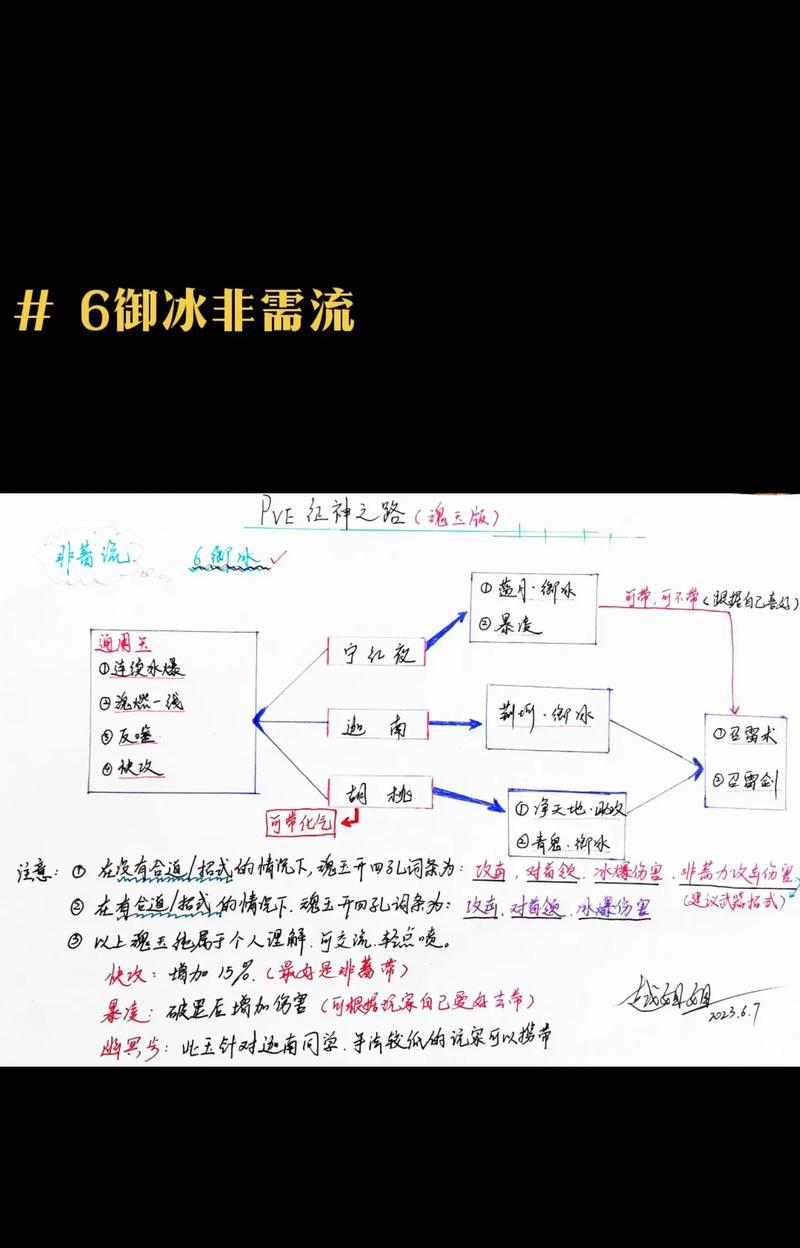 # 6御冰非需流
PVE 征神之路(魂玉版)
非蓄流
6御冰
通用玉
①连续冰爆
②魂燃一线
③反噬
④快攻
宁红夜
迦南
胡桃
可带化气
①蓝月·御冰
②暴凌
荆坷·御冰
①净天地·
②青鬼·御冰
可带,可不带(跟据自己喜好)
①召雷术
②召雷剑
注意:①在没有合迫/招式的情况下,魂玉开四孔词条为:攻击,对首领,冰爆伤害,非蓄力攻击伤害
(建议武器招式)
②在有合迫/招式的情况下,魂玉开四孔词条为:攻击,对首领,冰爆伤害
③以上魂玉纯属于个人理解,可交流,轻点喷。
快攻:增加15%(最好是非蓄带)
暴凌:破罡后增加伤害(可根据玩家自己爱好去带)
幽冥步:此玉针对迦南同学,手法较低的玩家可以携带
越姐姐
2023.6.7